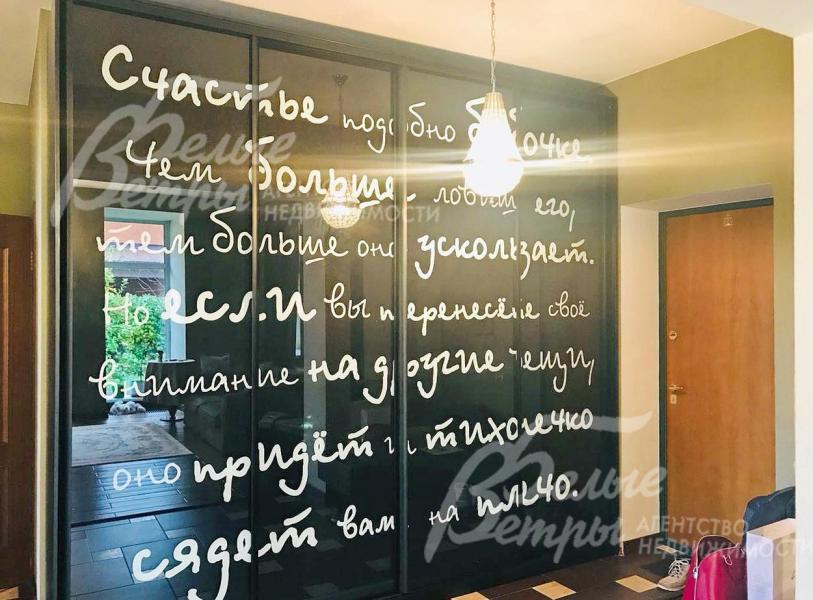 Счастье подобно бабочке.
Чем больше ловиш его,
тем больше оно ускользает.
Но если вы перенесёте своё
внимание на другие вещи,
оно придёт и тихонечко
сядет вам на плечо.
Белые Ветры
АГЕНТСТВО НЕДВИЖИМОСТИ
Белые Ветры
АГЕНТСТВО НЕДВИЖИМОСТИ